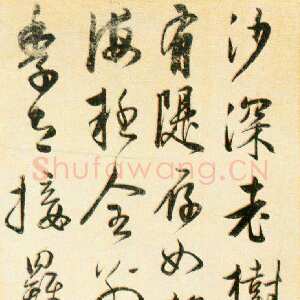 沙深老樹
有隄存如
海拯全
季立接羅
Shufawang.CN